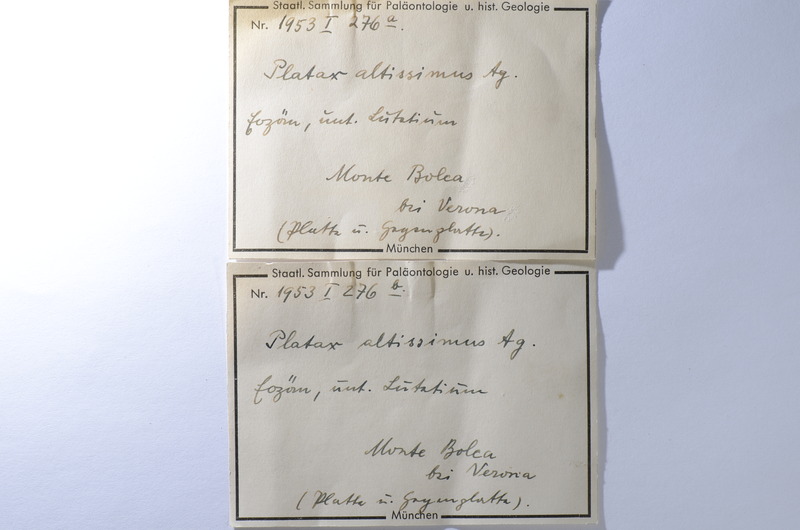 Staatl. Sammlung für Paläontologie u. hist. Geologie
Nr. 1953 I 276 a.
Platax altissimus Ag.
Eozän, unt. Lutetium
Monte Bolca
bei Verona
(Platte u. Gegenplatte).
München
Staatl. Sammlung für Paläontologie u. hist. Geologie
Nr. 1953 I 276 b.
Platax altissimus Ag.
Eozän, unt. Lutetium
Monte Bolca
bei Verona
(Platte u. Gegenplatte).
München